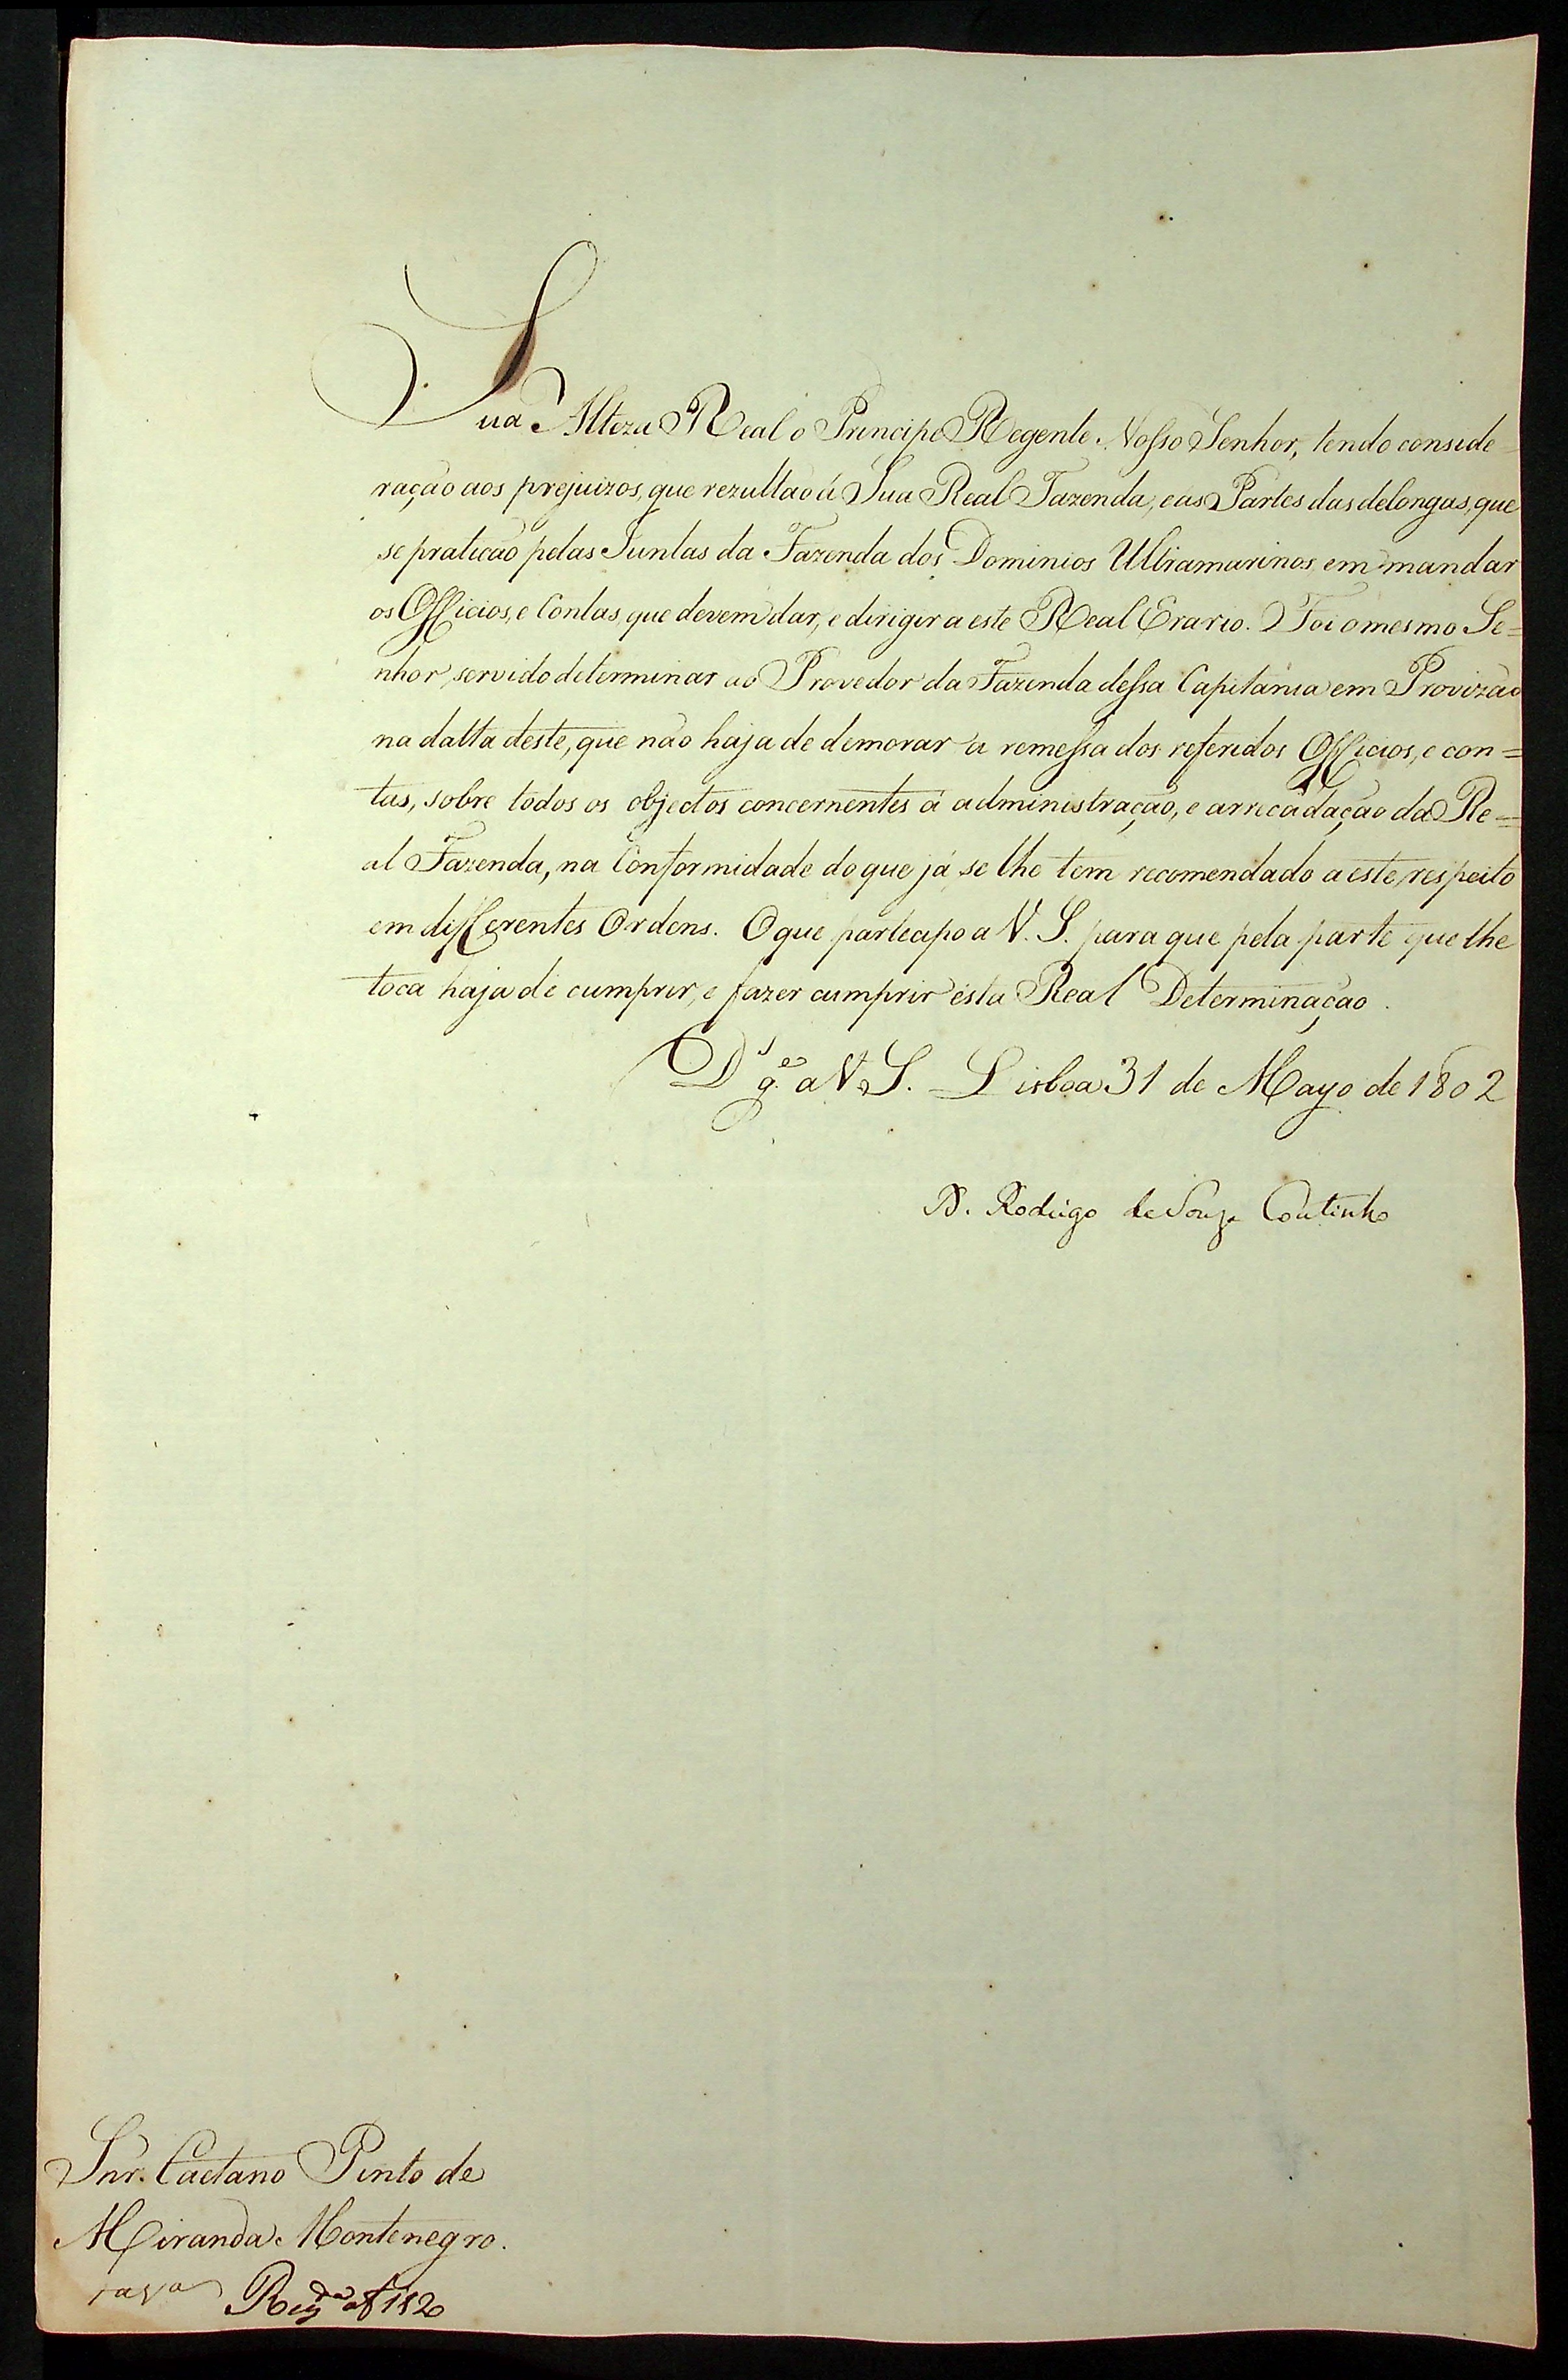 Sua Alteza Real o Principe Regente Nosso Senhor, tendo conside-
ração aos prejuizos, que rezultão á Sua Real Fazenda, e ás Partes das delongas, que
se praticão pelas Juntas da Fazenda dos Dominios Ultramarinos em mandar
os Officios, e Contas, que devem dar, e dirigir a este Real Erario. Foi o mesmo Se=
nhor servido determinar ao Provedor da Fazenda dessa Capitania em Provizão
na datta deste, que não haja de demorar a remessa dos referidos Officios, e con=
tas, sobre todos os objectos concernentes á administração, e arrecadação da Re=
al Fazenda, na Conformidade do que já se lhe tem recomendado a este respeito
em differentes Ordens. O que participo a V. S. para que pela parte que lhe
toca haja de cumprir, e fazer cumprir ésta Real Determinação.
Ds. ge. a V. S. Lisboa 31 de Mayo de 1802
D. Rodrigo de Souza Coutinho
Snr. Caetano Pinto de
Miranda Montenegro.
Regda af 182